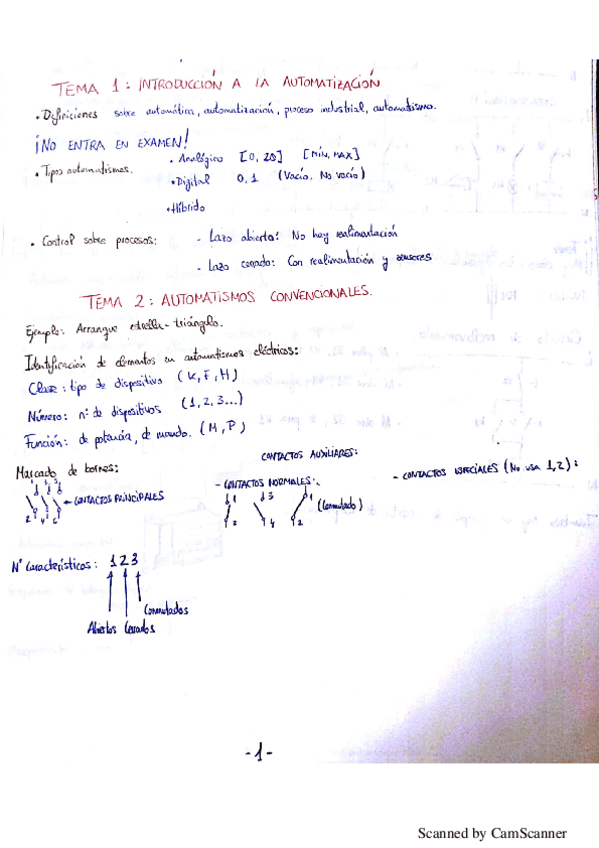 TEMA 1: INTRODUCCIÓN A LA AUTOMATIZACIÓN
• Definiciones sobre automática, automatización, proceso industrial, automatismo.
¡NO ENTRA EN EXAMEN!
• Tipos automatismos.
• Analógico [0, 20] [MÍN, MAX]
• Digital 0, 1 (Vacío, No vacío)
• Híbrido
• Control sobre procesos:
- Lazo abierto: No hay realimentación
- Lazo cerrado: Con realimentación y sensores
TEMA 2: AUTOMATISMOS CONVENCIONALES.
Ejemplo: Arranque estrella-triángulo.
Identificación de elementos en automatismos eléctricos:
Clase: tipo de dispositivo (K, F, H)
Número: nº de dispositivos (1, 2, 3...)
Función: de potencia, de mando. (M, P)
Marcado de bornes:
CONTACTOS AUXILIARES:
1 3 5
2 4 6
- CONTACTOS PRINCIPALES
- CONTACTOS NORMALES:
1 3 1
2 4 2
(Conmutado)
- CONTACTOS ESPECIALES (No usa 1, 2):
Nº Característicos: 1 2 3
Conmutados
Abiertos Cerrados
-1-
Scanned by CamScanner